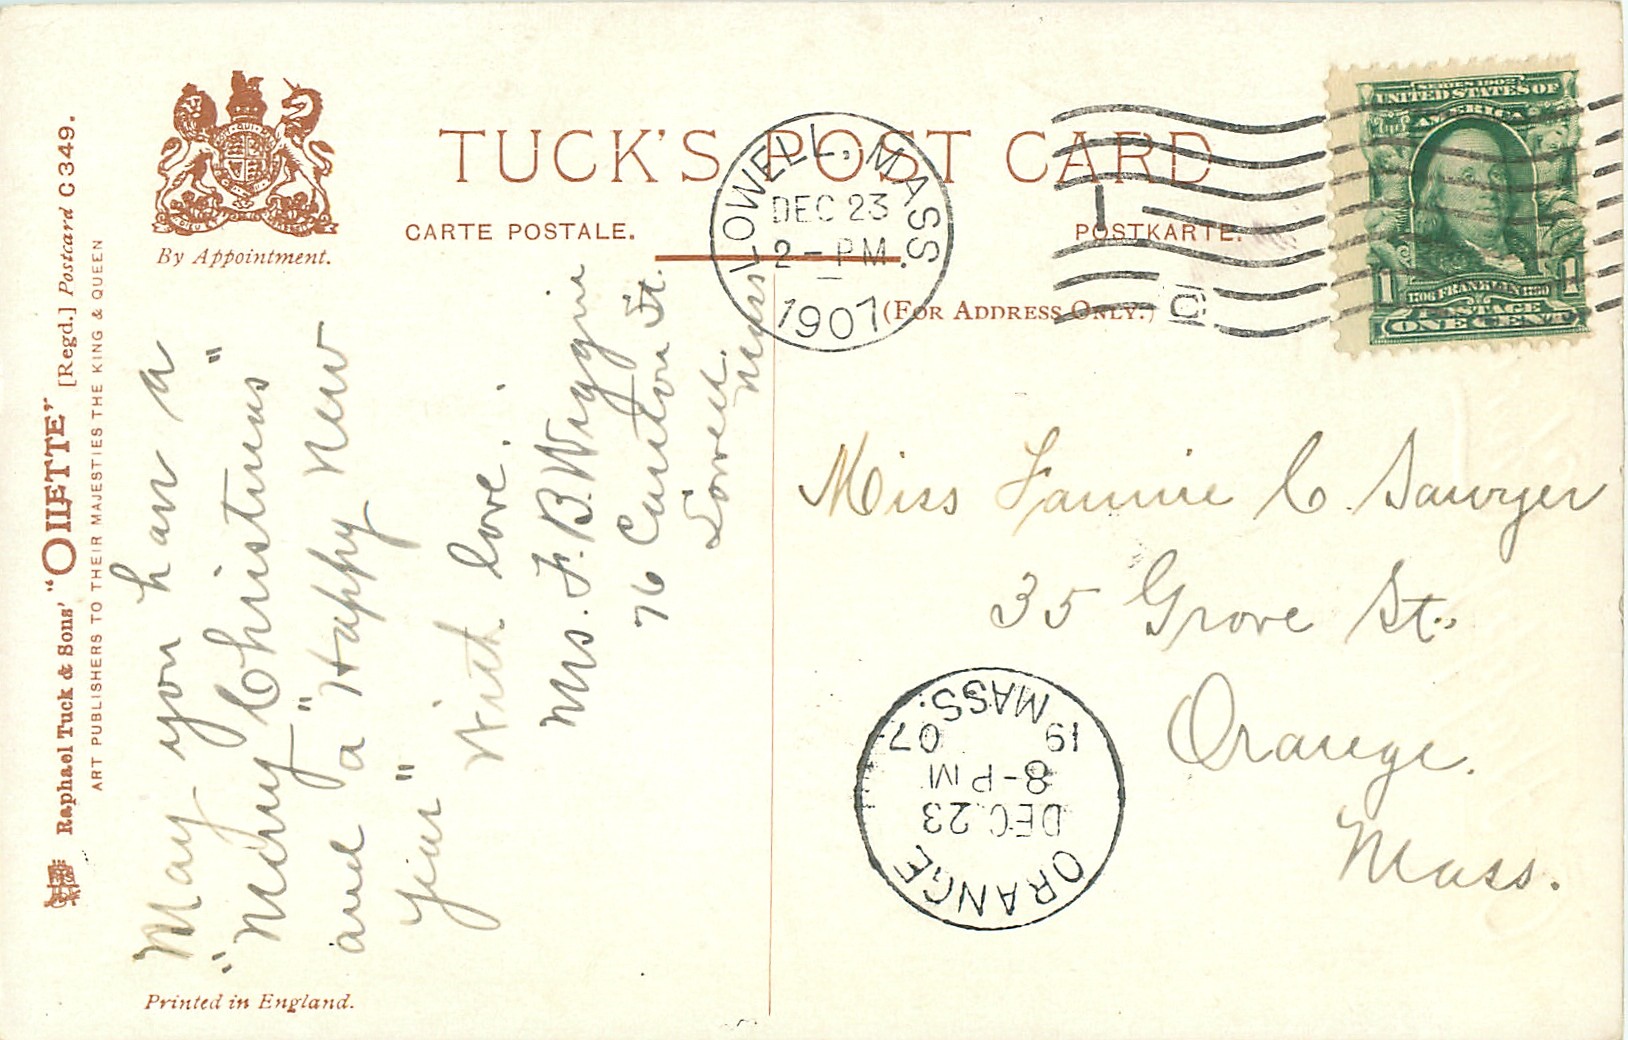 TUCK'S POST CARD
CARTE POSTALE.
POSTKARTE.
(FOR ADDRESS ONLY.)
By Appointment.
Raphael Tuck & Sons' "OILETTE" [Regd.] Postcard C 349.
ART PUBLISHERS TO THEIR MAJESTIES THE KING & QUEEN
Printed in England.
LOWELL, MASS
DEC 23
2 - PM.
1907
SERIES 1902
UNITED STATES OF
AMERICA
1706 FRANKLIN 1790
1 1
POSTAGE
ONE CENT
May you have a
"Merry Christmas"
and a "Happy New
Year"
With love.
Mrs. F. B. Wiggin
76 Canton St.
Lowell.
Mass
Miss Fannie C. Sawyer
35 Grove St.
Orange.
Mass.
ORANGE
DEC. 23
8-PM
19 07
MASS.